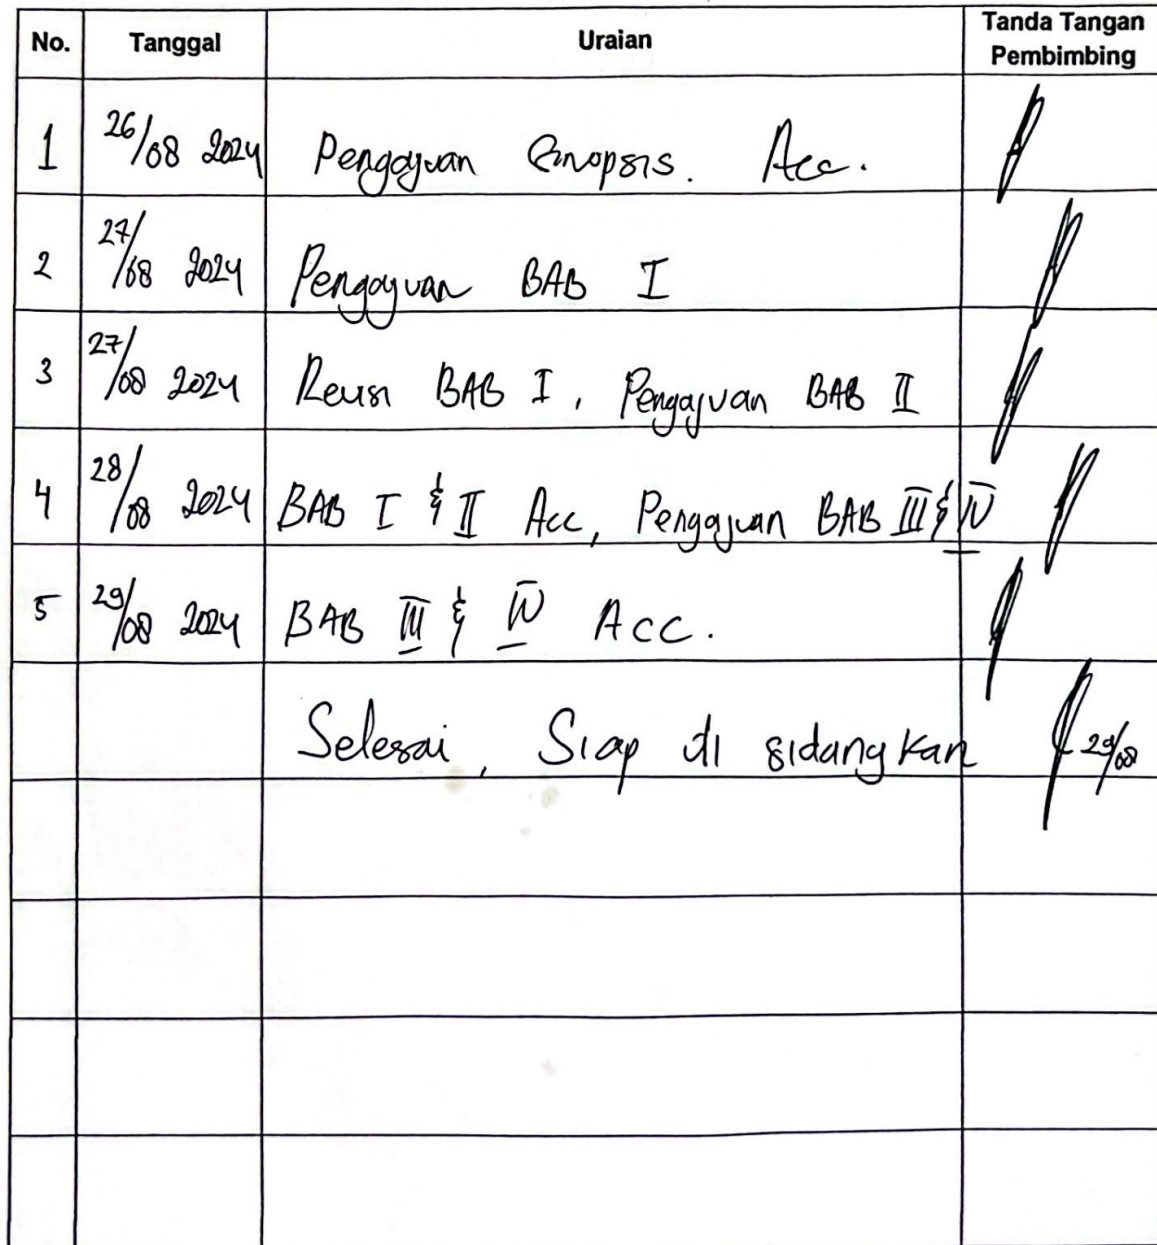 No. Tanggal Uraian Tanda Tangan Pembimbing
1 26/08 2024 Pengajuan Sinopsis. Acc.
2 27/08 2024 Pengajuan BAB I
3 27/08 2024 Revisi BAB I, Pengajuan BAB II
4 28/08 2024 BAB I & II Acc, Pengajuan BAB III & IV
5 29/08 2024 BAB III & IV Acc.
Selesai, Siap di sidangkan 29/08